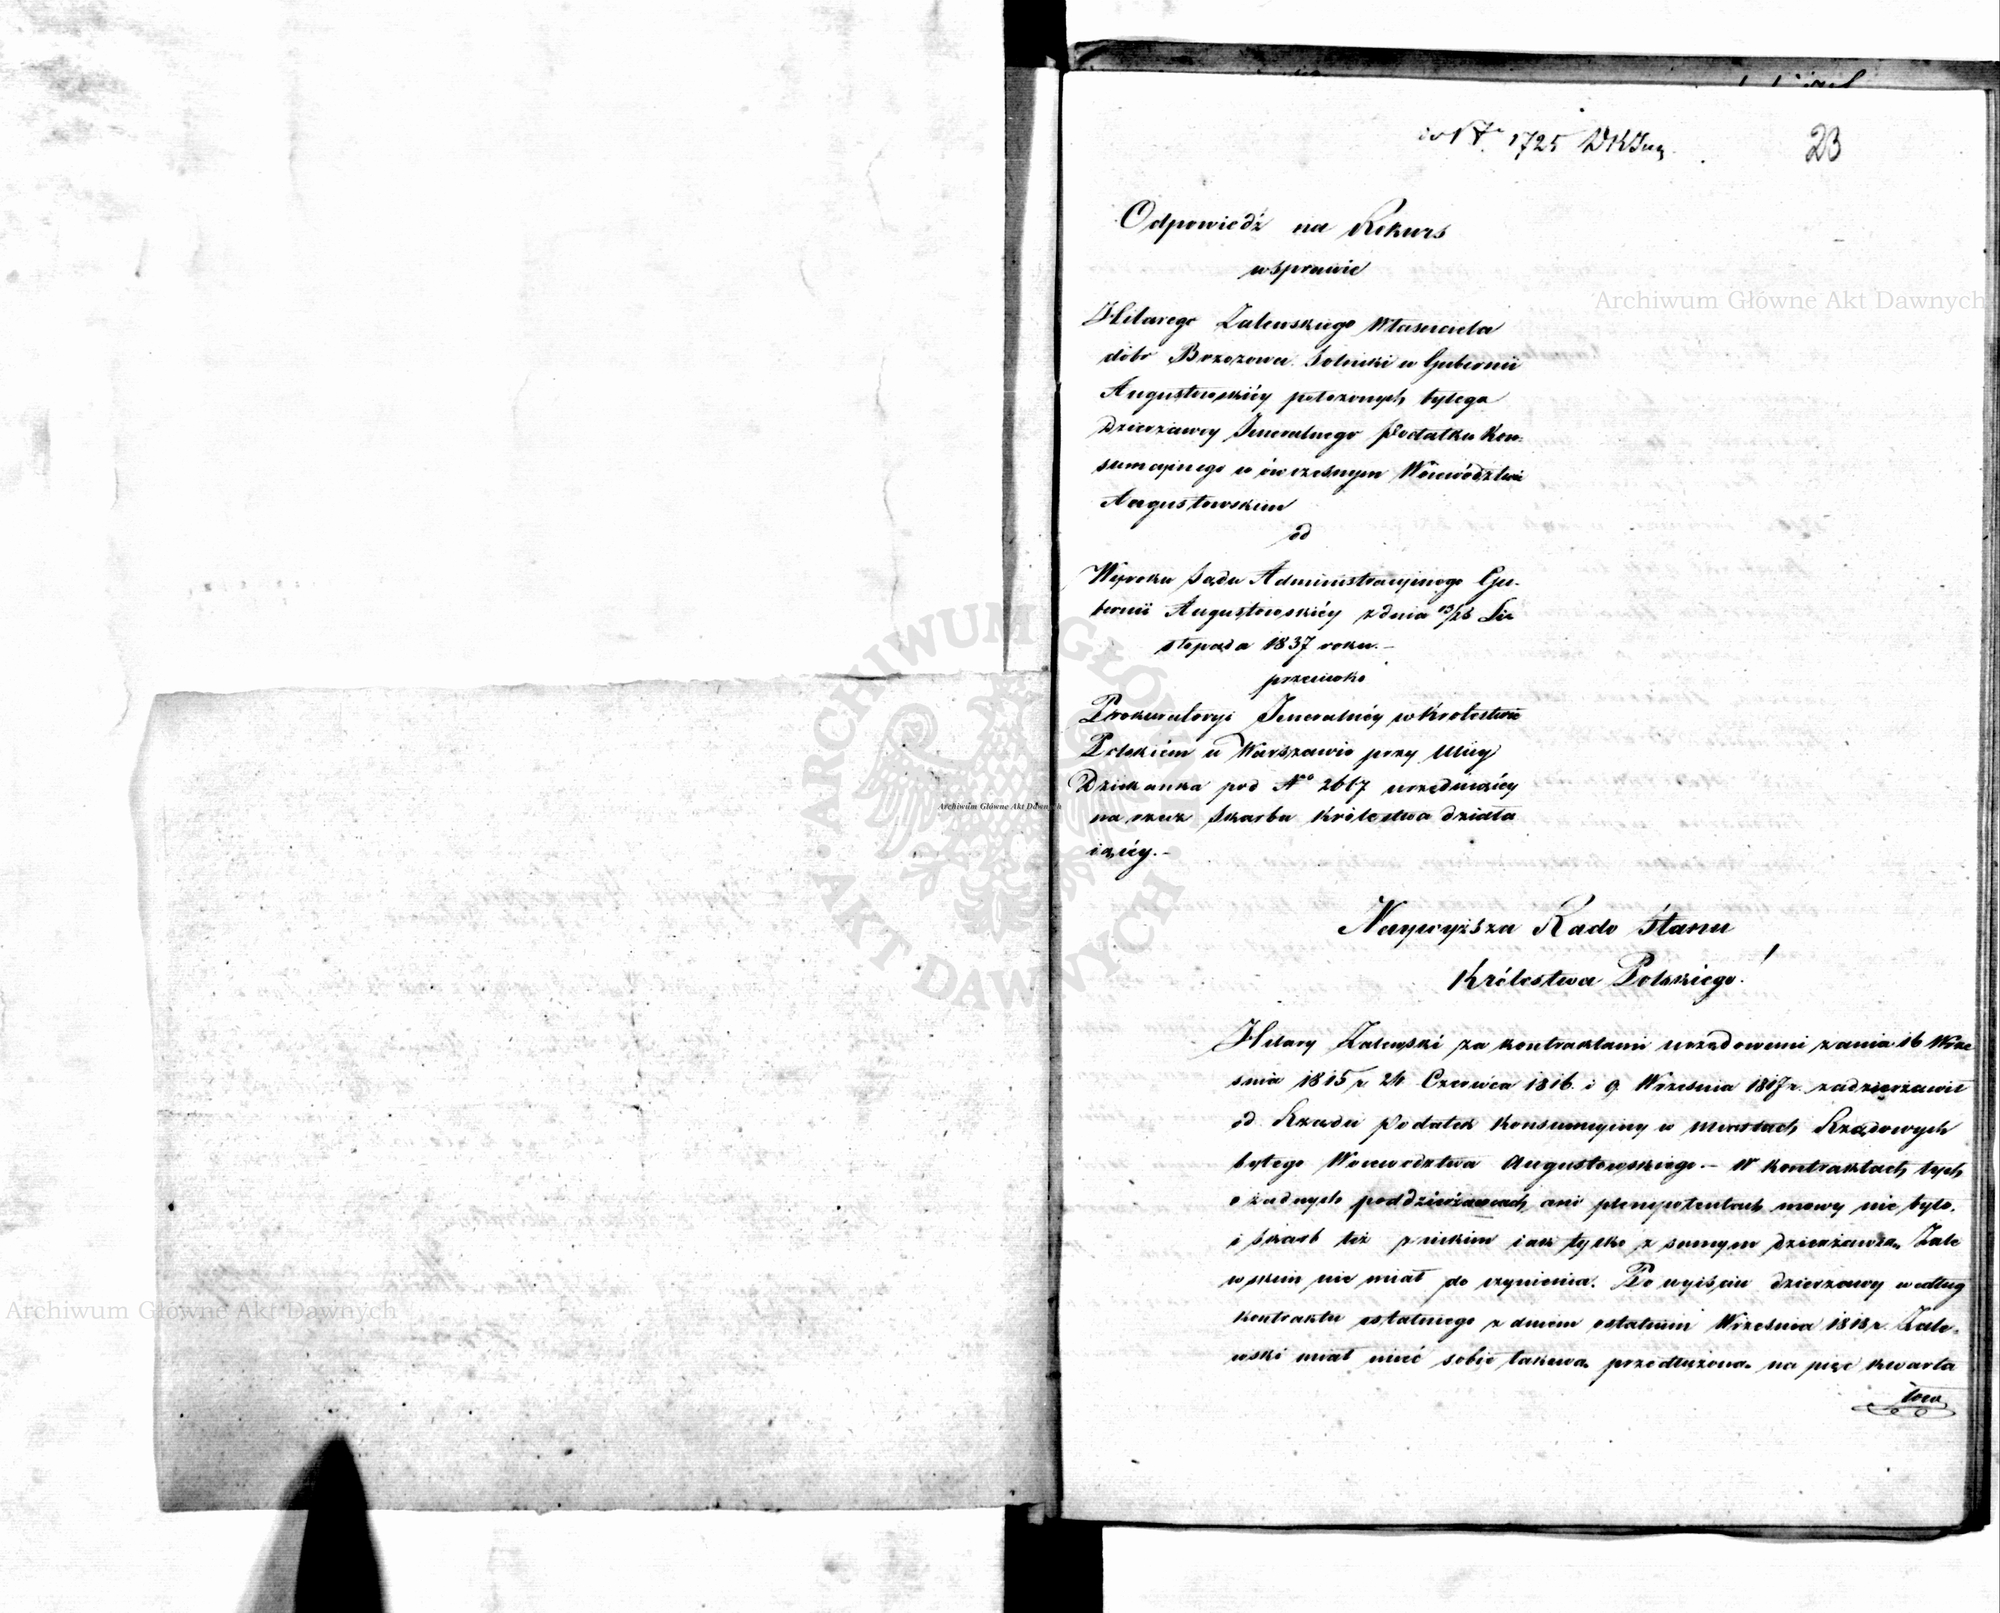 1725
23
Odpowiedź na Rekurs
w sprawie
Hilarego Zalewskiego Właściciela
dóbr Brzozowa Solniki w Gubernii
Augustowskiéy położonych, byłego
Dzierżawcy Jeneralnego Podatku Kon-
sumcyinego w ówczesnym Woiewództwie
Augustowskim
od
Wyroku Sądu Administracyinego Gu-
bernii Augustowskiéy z dnia 13/25 Li-
stopada 1837 roku.-
przeciwko
Prokuratoryi Jeneralnéy w Królestwie
Polskiem w Warszawie przy Ulicy
Dziekanka pod No 2667 urzęduiącéy
na rzecz Skarbu Królestwa działa
iącéy.-
Naywyższa Rado Stanu
Królestwa Polskiego!
Hilary Zalewski za kontraktami urzędowemi z dnia 16 Wrze
śnia 1815 r 24 Czerwca 1816. i 9. Września 1817 r. zadzierżawił
od Rządu Podatek Konsumcyiny w miastach Rządowych
byłego Woiewództwa Augustowskiego.- W kontraktach tych
o żadnych poddzierżawcach, ani plenipotentach mowy nie było,
i Skarb też z nikim iak tylko z samym dzierżawcą Zale
wskim nie miał do czynienia. Po wyiściu dzierżawy według
kontraktu ostatniego z dniem ostatnim Września 1818 r. Zale-
wski miał mieć sobie takową przedłużoną na pięć kwarta
łów
Archiwum Główne Akt Dawnych
Archiwum Główne Akt Dawnych
Archiwum Główne Akt Dawnych
ARCHIWUM GŁÓWNE AKT DAWNYCH